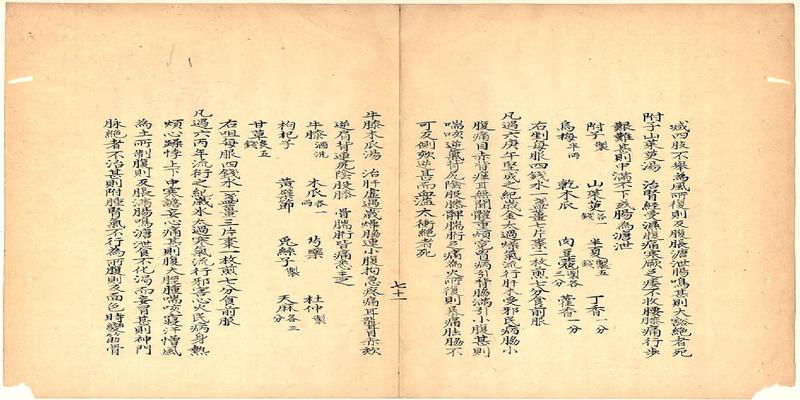 或四肢不舉為風所復則反腹脹溏泄腸鳴甚則大谿絕者死
附子山茱萸湯　治腎經受濕腹痛寒厥足痿不收腰膝痛行步
艱難甚則中滿不下或腸鳴溏泄
附子製　山茱萸各一錢　半夏製五錢　丁香一分
烏梅半兩　乾木瓜　肉豆蔻製各三分　藿香一分
右剉每服四錢水一盞姜七片棗一枚煎七分食前服
凡遇六庚年堅成之紀歲金太過燥氣流行肝木受邪民病脇小
腹痛目赤眥痒耳無聞體重煩寃胷痛引背脇滿引小腹甚則
喘咳逆氣背肩尻陰股膝髀腨胻足痛為火所復則暴痛胠脇不
可反側欬逆甚而血溢太衝絕者死
七十一
牛膝木瓜湯　治肝虛遇歲燥脇連小腹拘急疼痛耳聾目赤欬
逆肩背連尻陰股膝骨腨胻皆痛悉主之
牛膝酒洗　木瓜各一兩　芍藥　杜仲製
枸杞子　黃蘗節　兎絲子製　天麻各三分
甘草炙五錢
右咀每服四錢水一盞薑三片棗一枚煎七分食前服
凡遇六丙年流衍之紀歲水太過寒氣流行邪害心火民病身熱
煩心躁悸上下中寒譫妄心痛甚則腹大脛腫喘咳寢汗憎風
為土所制腹則反脹滿腸鳴溏泄食不化渴而妄冒甚則神門
脉絕者不治甚則附腫腎氣不行為所腹則反面色時變筋骨